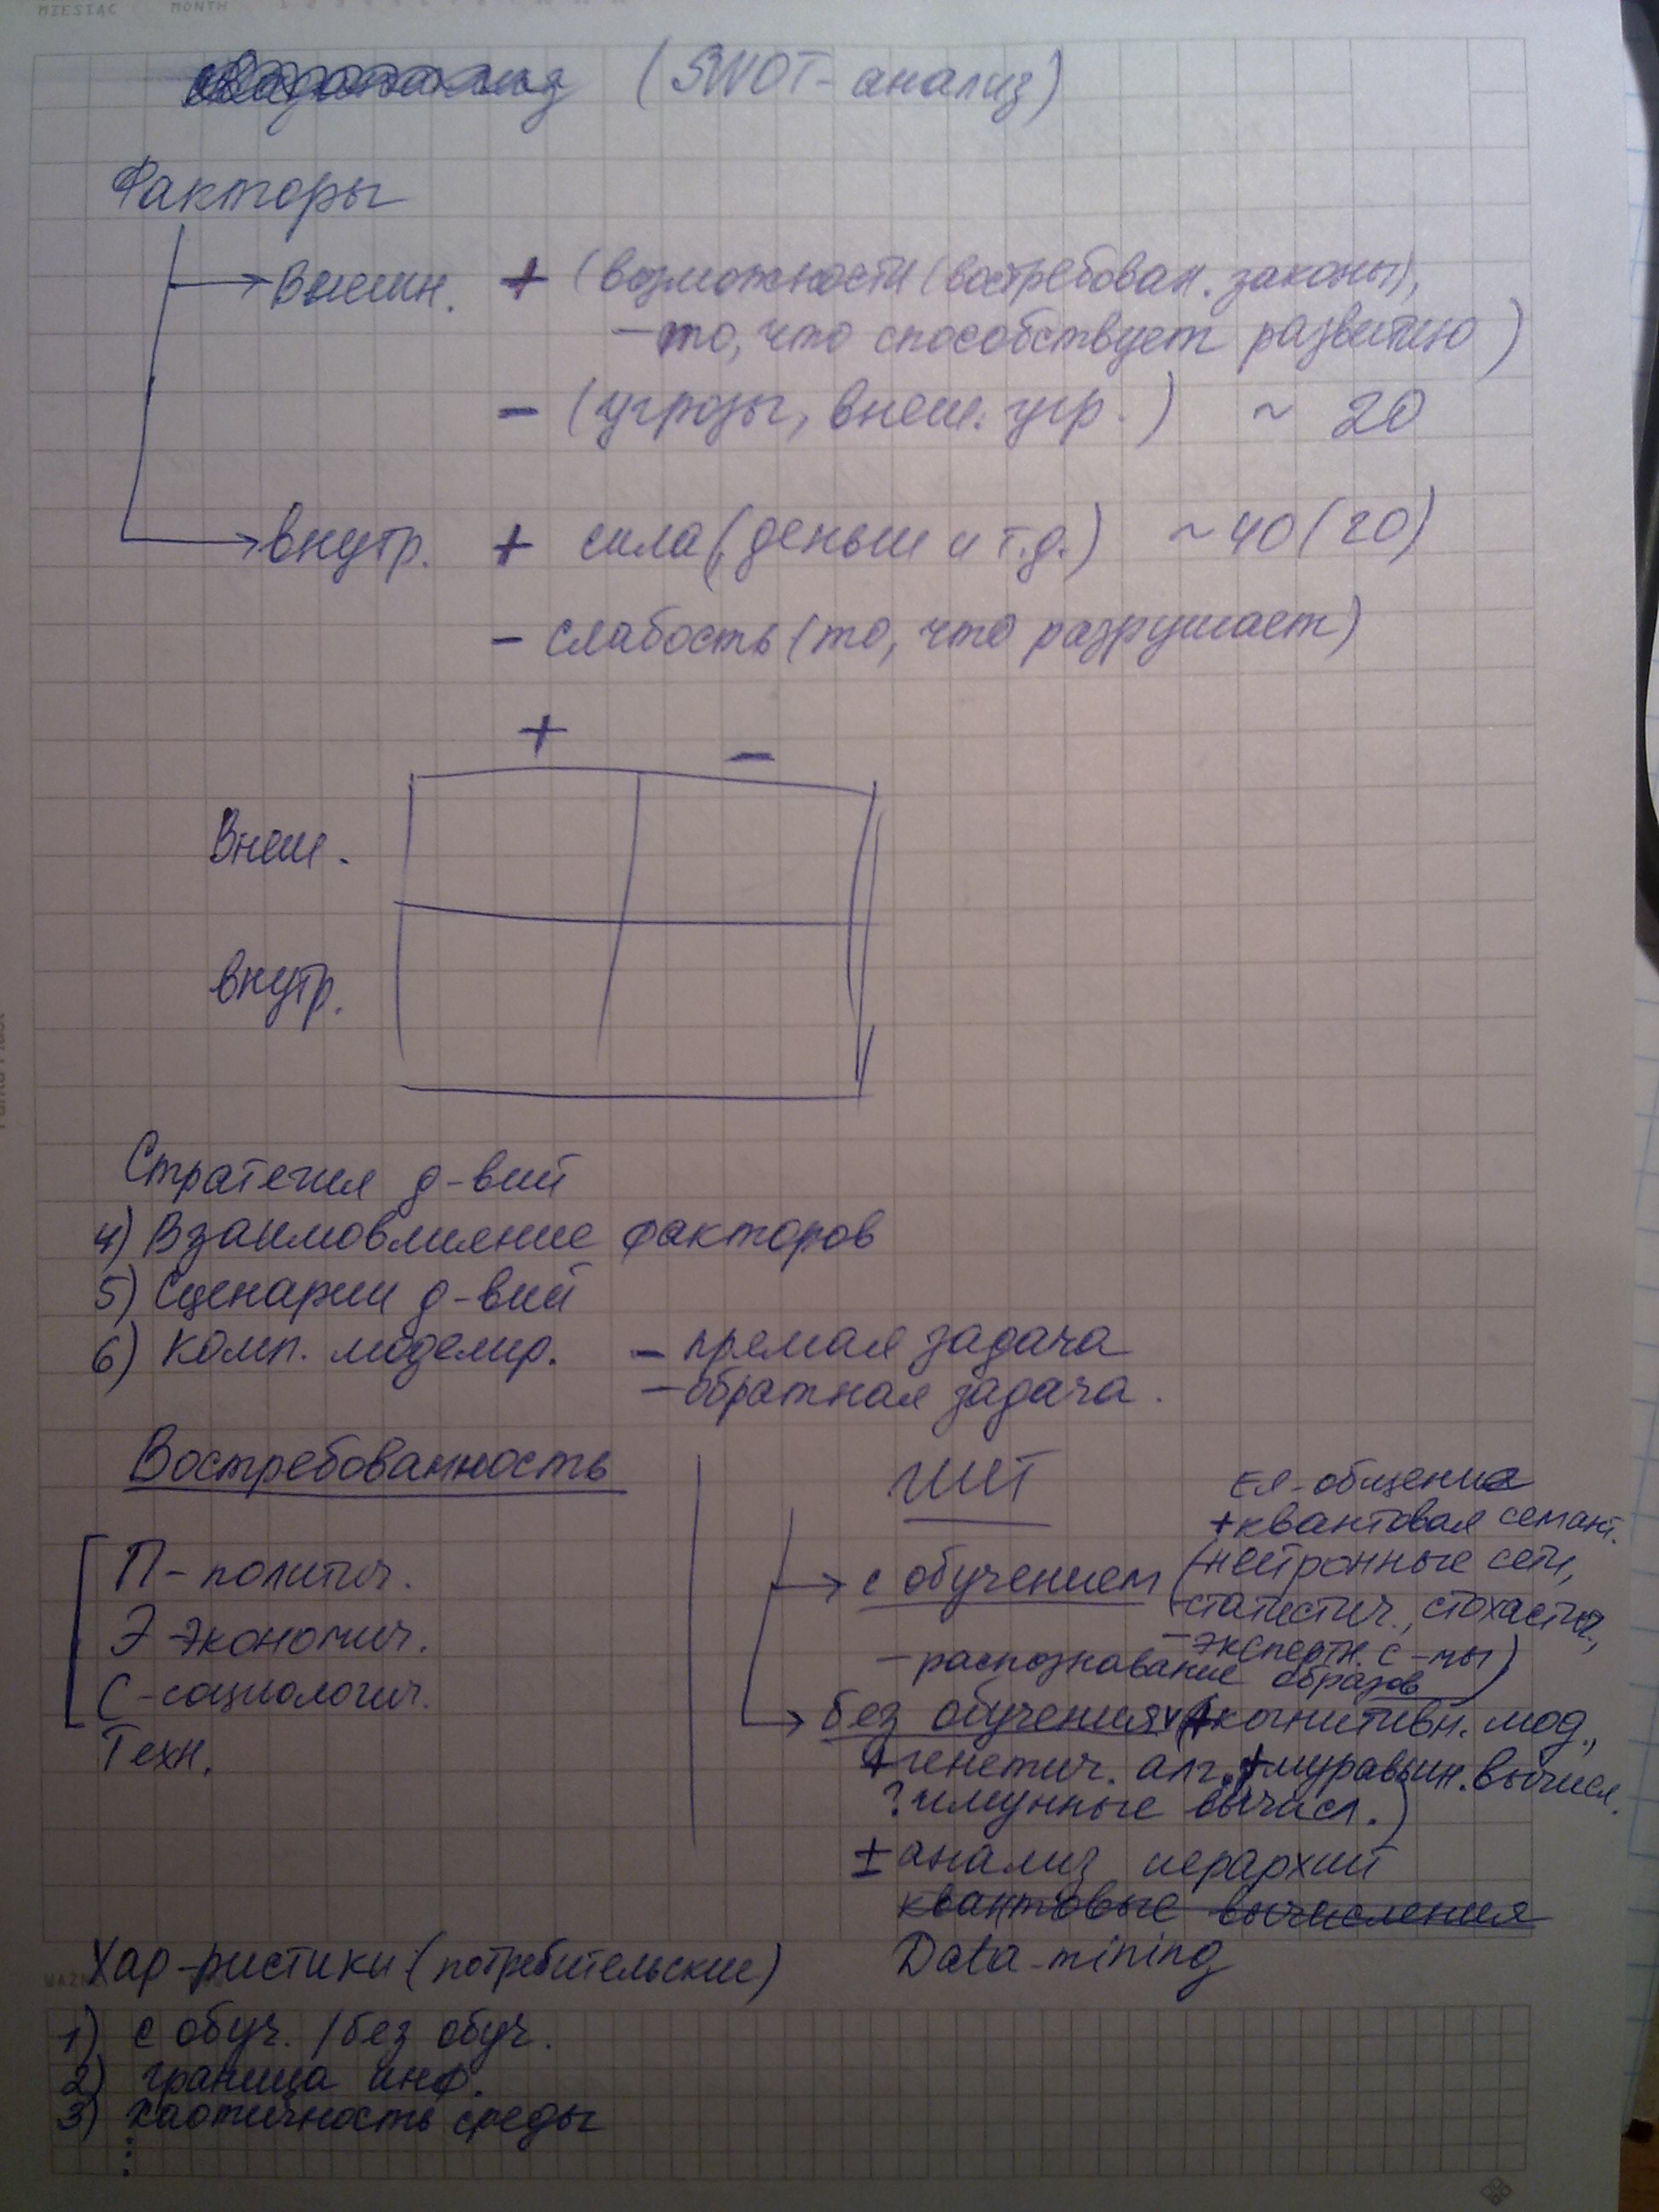 MIESIĄC MONTH
(SWOT-анализ)
Факторы
Внешн. + (возможности (востребован. законы),
- то, что способствует развитию)
- (угрозы, внеш. угр.) ~ 20
внутр. + сила (деньги и т.д.) ~ 40 (20)
- слабость (то, что разрушает)
+ -
Внеш.
внутр.
Стратегия д-вий
4) Взаимовлияние факторов
5) Сценарии д-вий
6) Комп. моделир. - прямая задача
- обратная задача.
Востребованность
П - политич.
Э - экономич.
С - социологич.
Техн.
ИИТ
ЕЯ-общение
+ квантовая семант.
с обучением (нейронные сети,
- статистич., стохастич.,
- экспертн. с-мы)
- распознавание образов
без обучения (+ когнитивн. мод.,
+ генетич. алг., + муравьин. вычисл.
? имунные вычисл.)
± анализ иерархий
квантовые вычисления
Data-mining
Хар-ристики (потребительские)
1) с обуч. / без обуч.
2) граница инф.
3) хаотичность среды
⋮